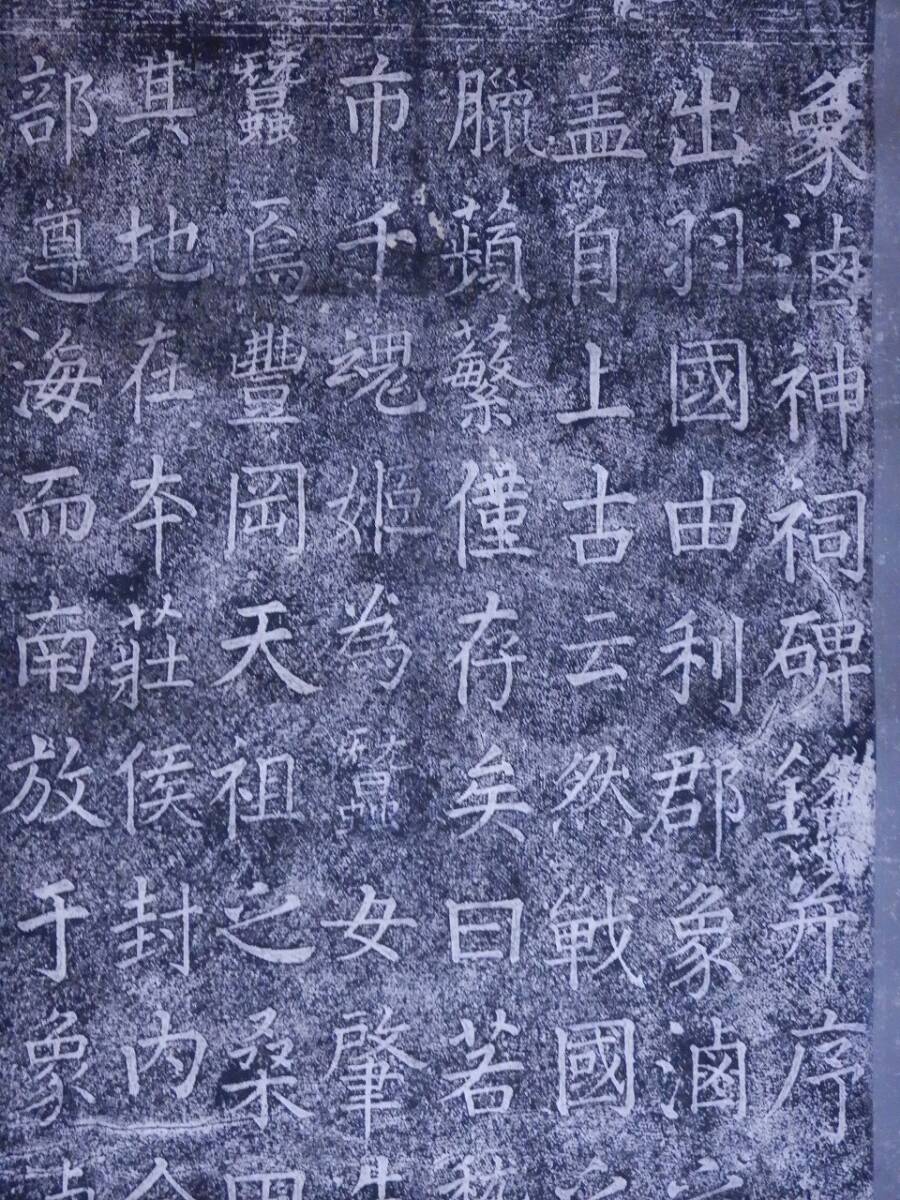 象潟神祠碑銘并序
出羽國由利郡象潟
盖自上古云然戦國
臘蘋蘩僅存矣曰若
市千魂姫為蠶女肇
蠶焉豐岡天祖之桑
其地在本莊侯封内
部遵海而南放于象